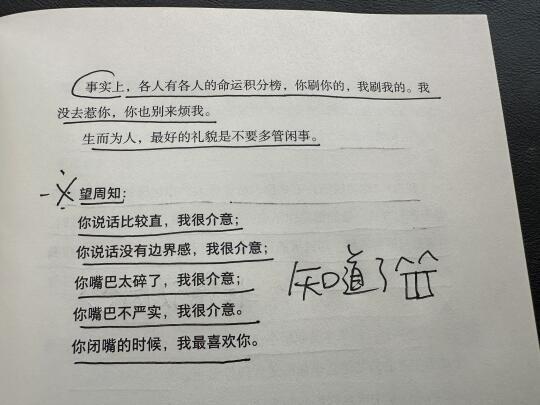 事实上，各人有各人的命运积分榜，你刷你的，我刷我的。我
没去惹你，你也别来烦我。
生而为人，最好的礼貌是不要多管闲事。
望周知：
你说话比较直，我很介意；
你说话没有边界感，我很介意；
你嘴巴太碎了，我很介意；
你嘴巴不严实，我很介意。
你闭嘴的时候，我最喜欢你。
知道了